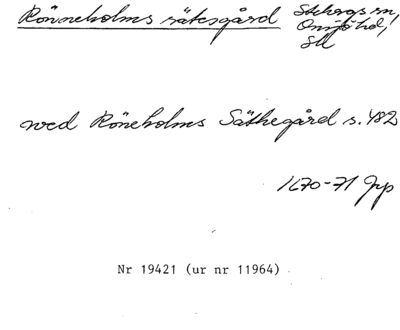 Rönneholms sätesgård Stehags sn,
Onsjö hd,
SM
med Röneholms Säthegård s. 482
1670-71 Jpp
Nr 19421 (ur nr 11964)